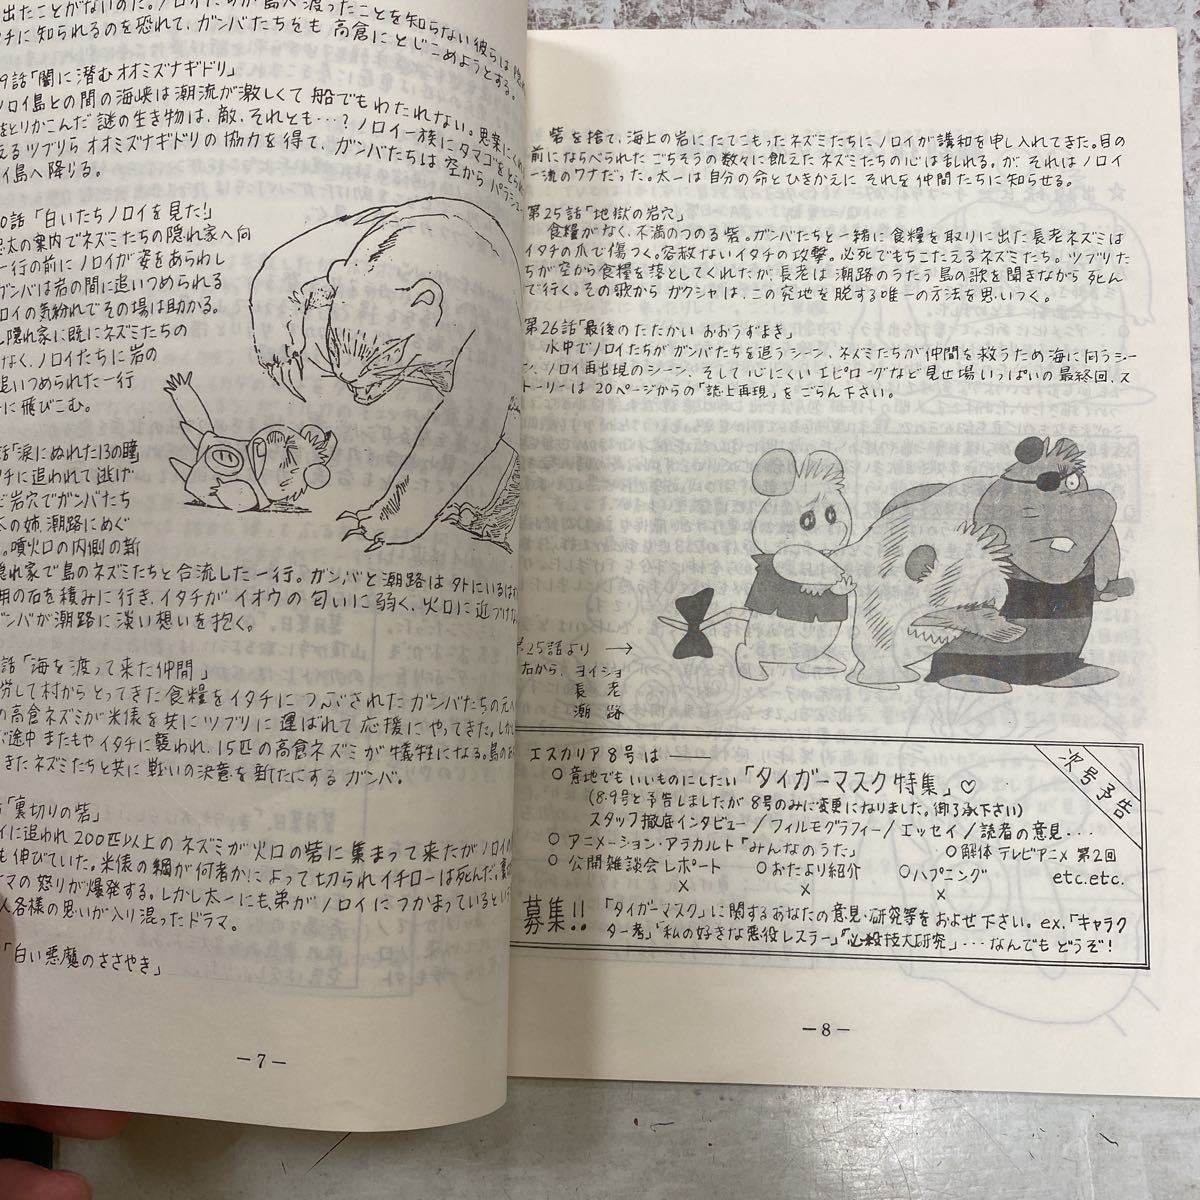 出たことがないのだ。ノロイたちが島へ渡ったことを知らない彼らは
チに知られるのを恐れて、ガンバたちをも高倉にとじこめようとする。
9話「闇に潜むオオミズナギドリ」
ノロイ島との間の海峡は潮流が激しくて船でもわたれない。思案にくれ
をとりかこんだ謎の生き物は、敵、それとも…？ノロイ一族にタマゴをとられ
えるツブリらオオミズナギドリの協力を得て、ガンバたちは空からパラシュー
イ島へ降じる。
0話「白いたちノロイを見た！」
忠太の案内でネズミたちの隠れ家へ向
一行の前にノロイが姿をあらわし
ガンバは岩の間に追いつめられる
ロイの気紛れでその場は助かる。
し隠れ家に既にネズミたちの
なく、ノロイたちに岩の
追いつめられた一行
に飛びこむ。
話「涙にぬれた13の瞳
タチに追われて逃げ
だ岩穴でガンバたち
太の姉潮路にめぐ
。噴火口の内側の新
隠れ家で島のネズミたちと合流した一行。ガンバと潮路は外にいる
用の石を積みに行き、イタチがイオウの匂いに弱く、火口に近づけな
ガンバが潮路に淡い想いを抱く。
話「海を渡って来た仲間」
労して村からとってきた食糧をイタチにつぶされたガンバたちの元へ
の高倉ネズミが米俵を共にツブリに運ばれて応援にやってきた。しかし
が途中またもやイタチに襲われ、15匹の高倉ネズミが犠牲になる。島の
きたネズミたちと共に戦いの決意を新たにするガンバ。
「裏切りの砦」
イに追われ200匹以上のネズミが火口の砦に集まって来たがノロイの
も伸びていた。米俵の綱が何者かによって切られイチローは死んだ。裏
マの怒りが爆発する。しかし太一にも弟がノロイにつかまっているという
人各様の思いが入り混ったドラマ。
「白い悪魔のささやき」
－7－
砦を捨て、海上の岩にたてこもったネズミたちにノロイが講和を申し入れてきた。目の
前にならべられたごちそうの数々に飢えたネズミたちの心は乱れる。が、それはノロイ
一流のワナだった。太一は自分の命とひきかえにそれを仲間たちに知らせる。
第25話「地獄の岩穴」
食糧がなく、不満のつのる砦。ガンバたちと一緒に食糧を取りに出た長老ネズミは
イタチの爪で傷つく。容赦ないイタチの攻撃。必死でもちこたえるネズミたち。ツブリた
ちが空から食糧を落としてくれたが、長老は潮路のうたう島の歌を聞きながら死ん
で行く。その歌からガクシャは、この窮地を脱する唯一の方法を思いつく。
第26話「最後のたたかい おおうずまき」
水中でノロイたちがガンバたちを追うシーン、ネズミたちが仲間を救うため海に向うシー
ン、ノロイ再出現のシーン、そして心にくいエピローグなど見せ場いっぱいの最終回、ス
トーリーは20ページからの「誌上再現」をごらん下さい。
25話より →
右から、ヨイショ
長老
潮路
次号予告
エスカリア8号は――
○意地でもいいものにしたい「タイガーマスク特集」♡
(8・9号と予告しましたが8号のみに変更になりました。御了承下さい)
スタッフ徹底インタビュー／フィルモグラフィー／エッセイ／読者の意見・・・
○アニメーション・アラカルト「みんなのうた」 ○解体テレビアニメ 第2回
○公開雑談会レポート ○おたより紹介 ○ハプニング etc.etc.
× × ×
募集!! 「タイガーマスク」に関するあなたの意見・研究等をおよせ下さい。ex.「キャラク
ター考」「私の好きな悪役レスラー」「必殺技大研究」・・・なんでもどうぞ！
－8－